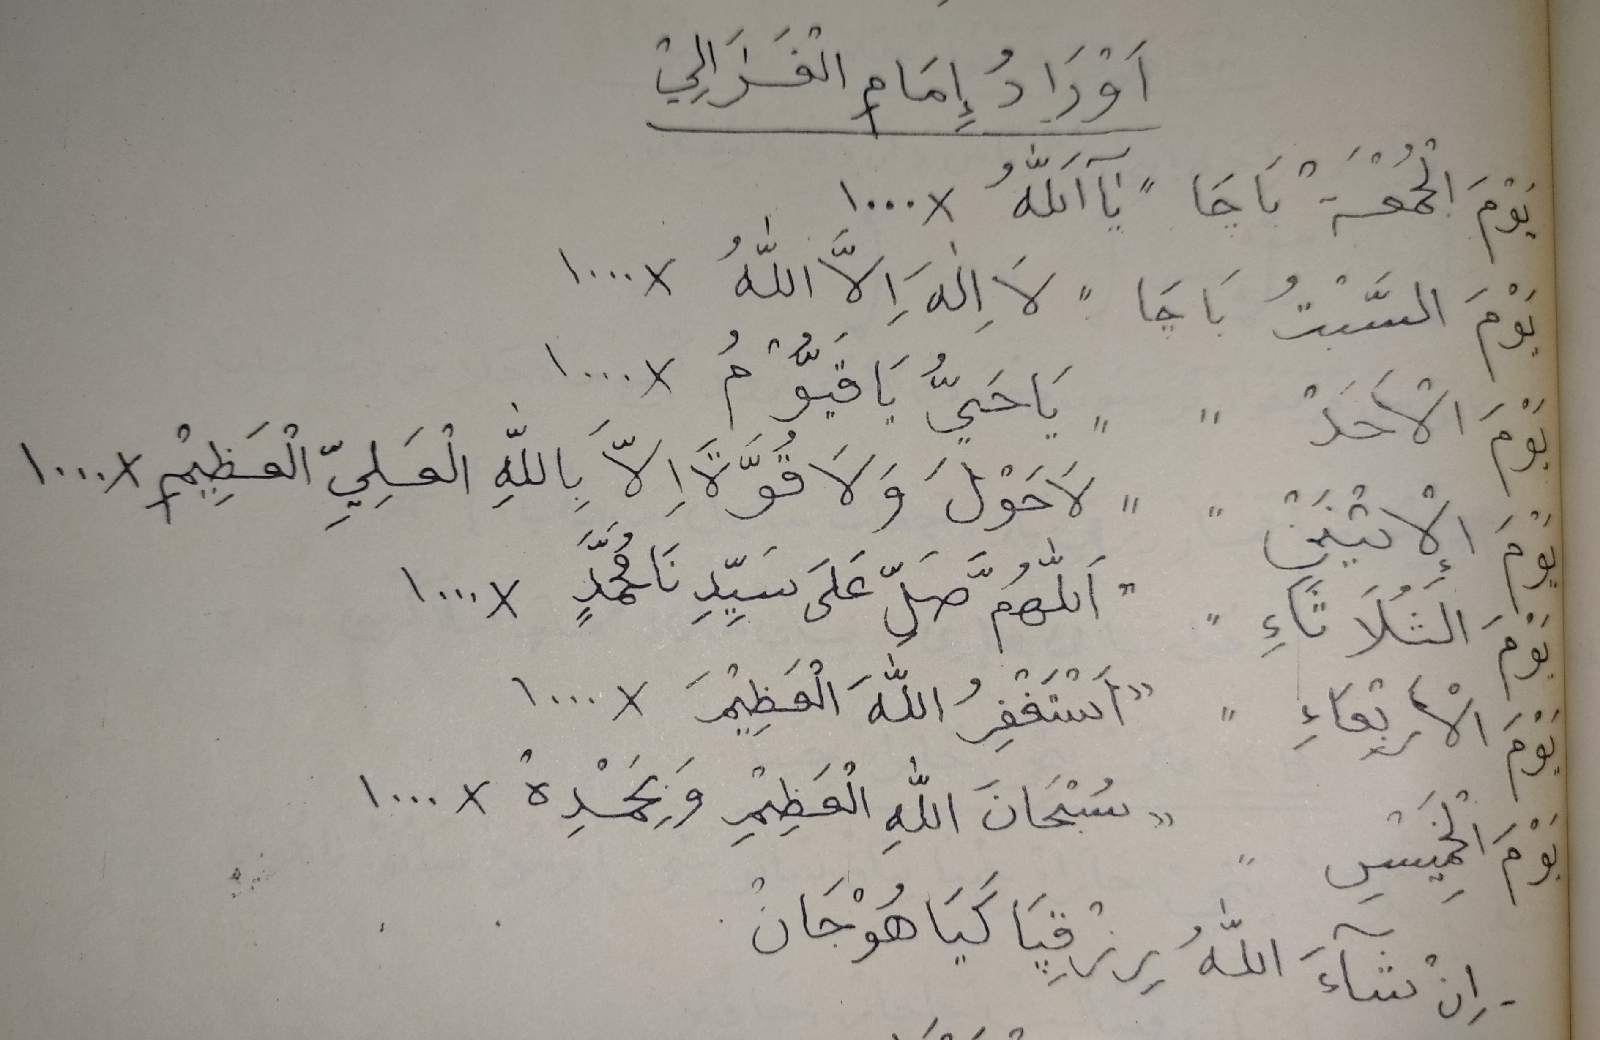 اَوْرَادُ إِمَامِ الْغَزَالِيْ
يَوْمَ الْجُمُعَةْ بَاچَا " يَآ اَللّٰهُ ×١٠٠٠
يَوْمَ السَّبْتُ بَاچَا " لَا اِلٰهَ اِلَّا اللّٰهُ ×١٠٠٠
يَوْمَ الْاَحَدْ " " يَا حَيُّ يَا قَيُّوْمُ ×١٠٠٠
يَوْمَ الْإِثْنَيْنِ " " لَاحَوْلَ وَلَا قُوَّةَ اِلَّا بِاللّٰهِ الْعَلِيِّ الْعَظِيْمِ ×١٠٠٠
يَوْمَ الَثُلَاثَاءِ " " اَللّٰهُمَّ صَلِّ عَلَى سَيِّدِنَا مُحَمَّدٍ ×١٠٠٠
يَوْمَ الْأَرْبِعَاءِ " " اَسْتَغْفِرُ اللّٰهَ الْعَظِيْمَ ×١٠٠٠
يَوْمَ الْخَمِيْسِ " " سُبْحَانَ اللّٰهِ الْعَظِيْمِ وَبِحَمْدِهْ ×١٠٠٠
- اِنْ شَآءَ اللّٰهُ رِزْقِيَا كَيَا هُوْجَانْ